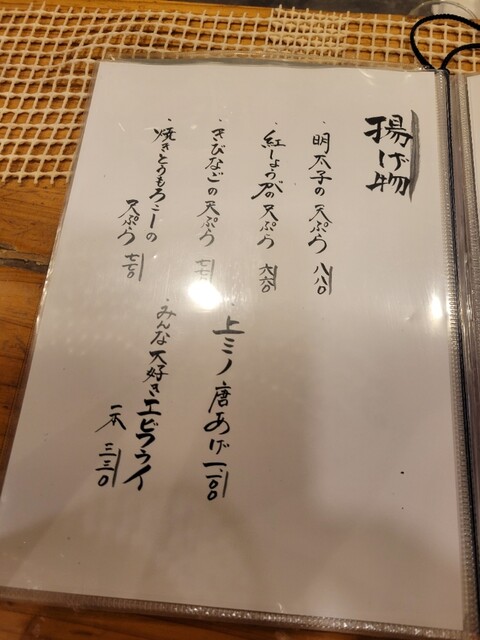 揚げ物
・明太子の天ぷら 八八〇
・紅しょうがの天ぷら 六六〇
・きびなごの天ぷら 七七〇
・焼きとうもろこしの
天ぷら 七七〇
・上ミノ唐あげ 一、一〇〇
・みんな大好きエビフライ
一本 三三〇